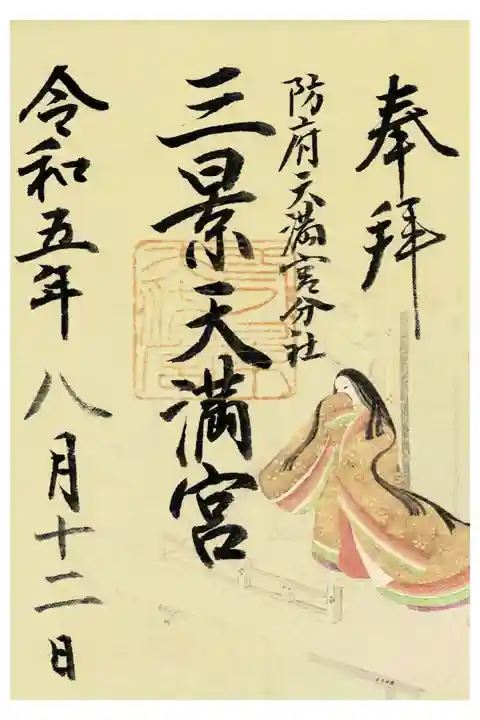 奉拝
防府天満宮分社
三景天満宮
令和五年 八月十二日